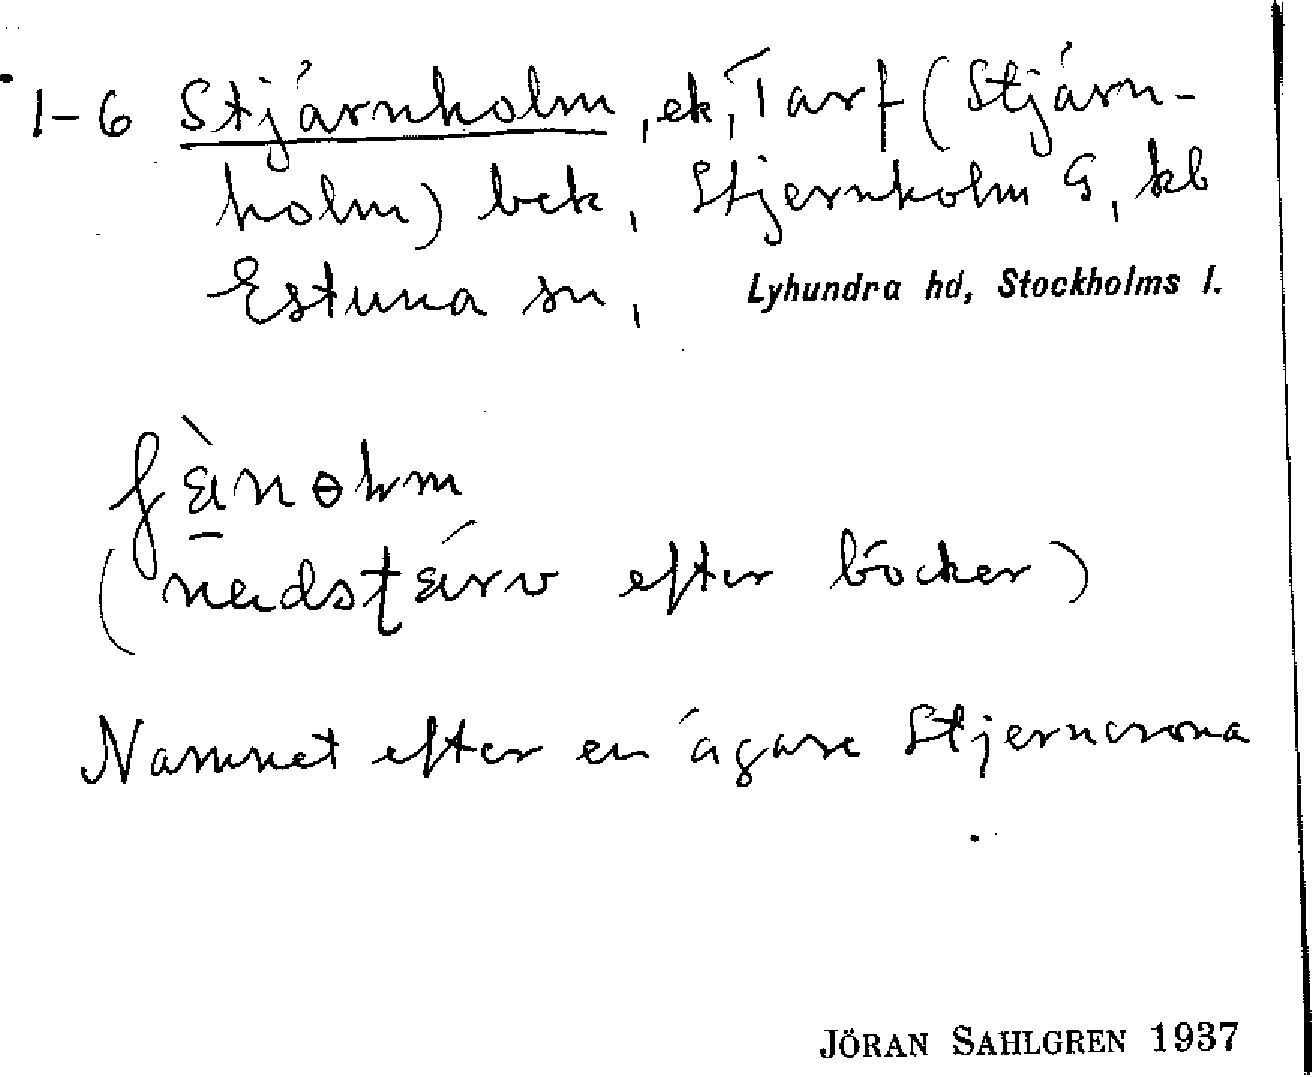 1-6 Stjärnholm, ek, Tarf (Stjärn-
holm) bek, Stjernholm G, kb
Estuna sn, Lyhundra hd, Stockholms l.
(nedstärv efter böcker)
Namnet efter en ägare Stjerncrona
JÖRAN SAHLGREN 1937